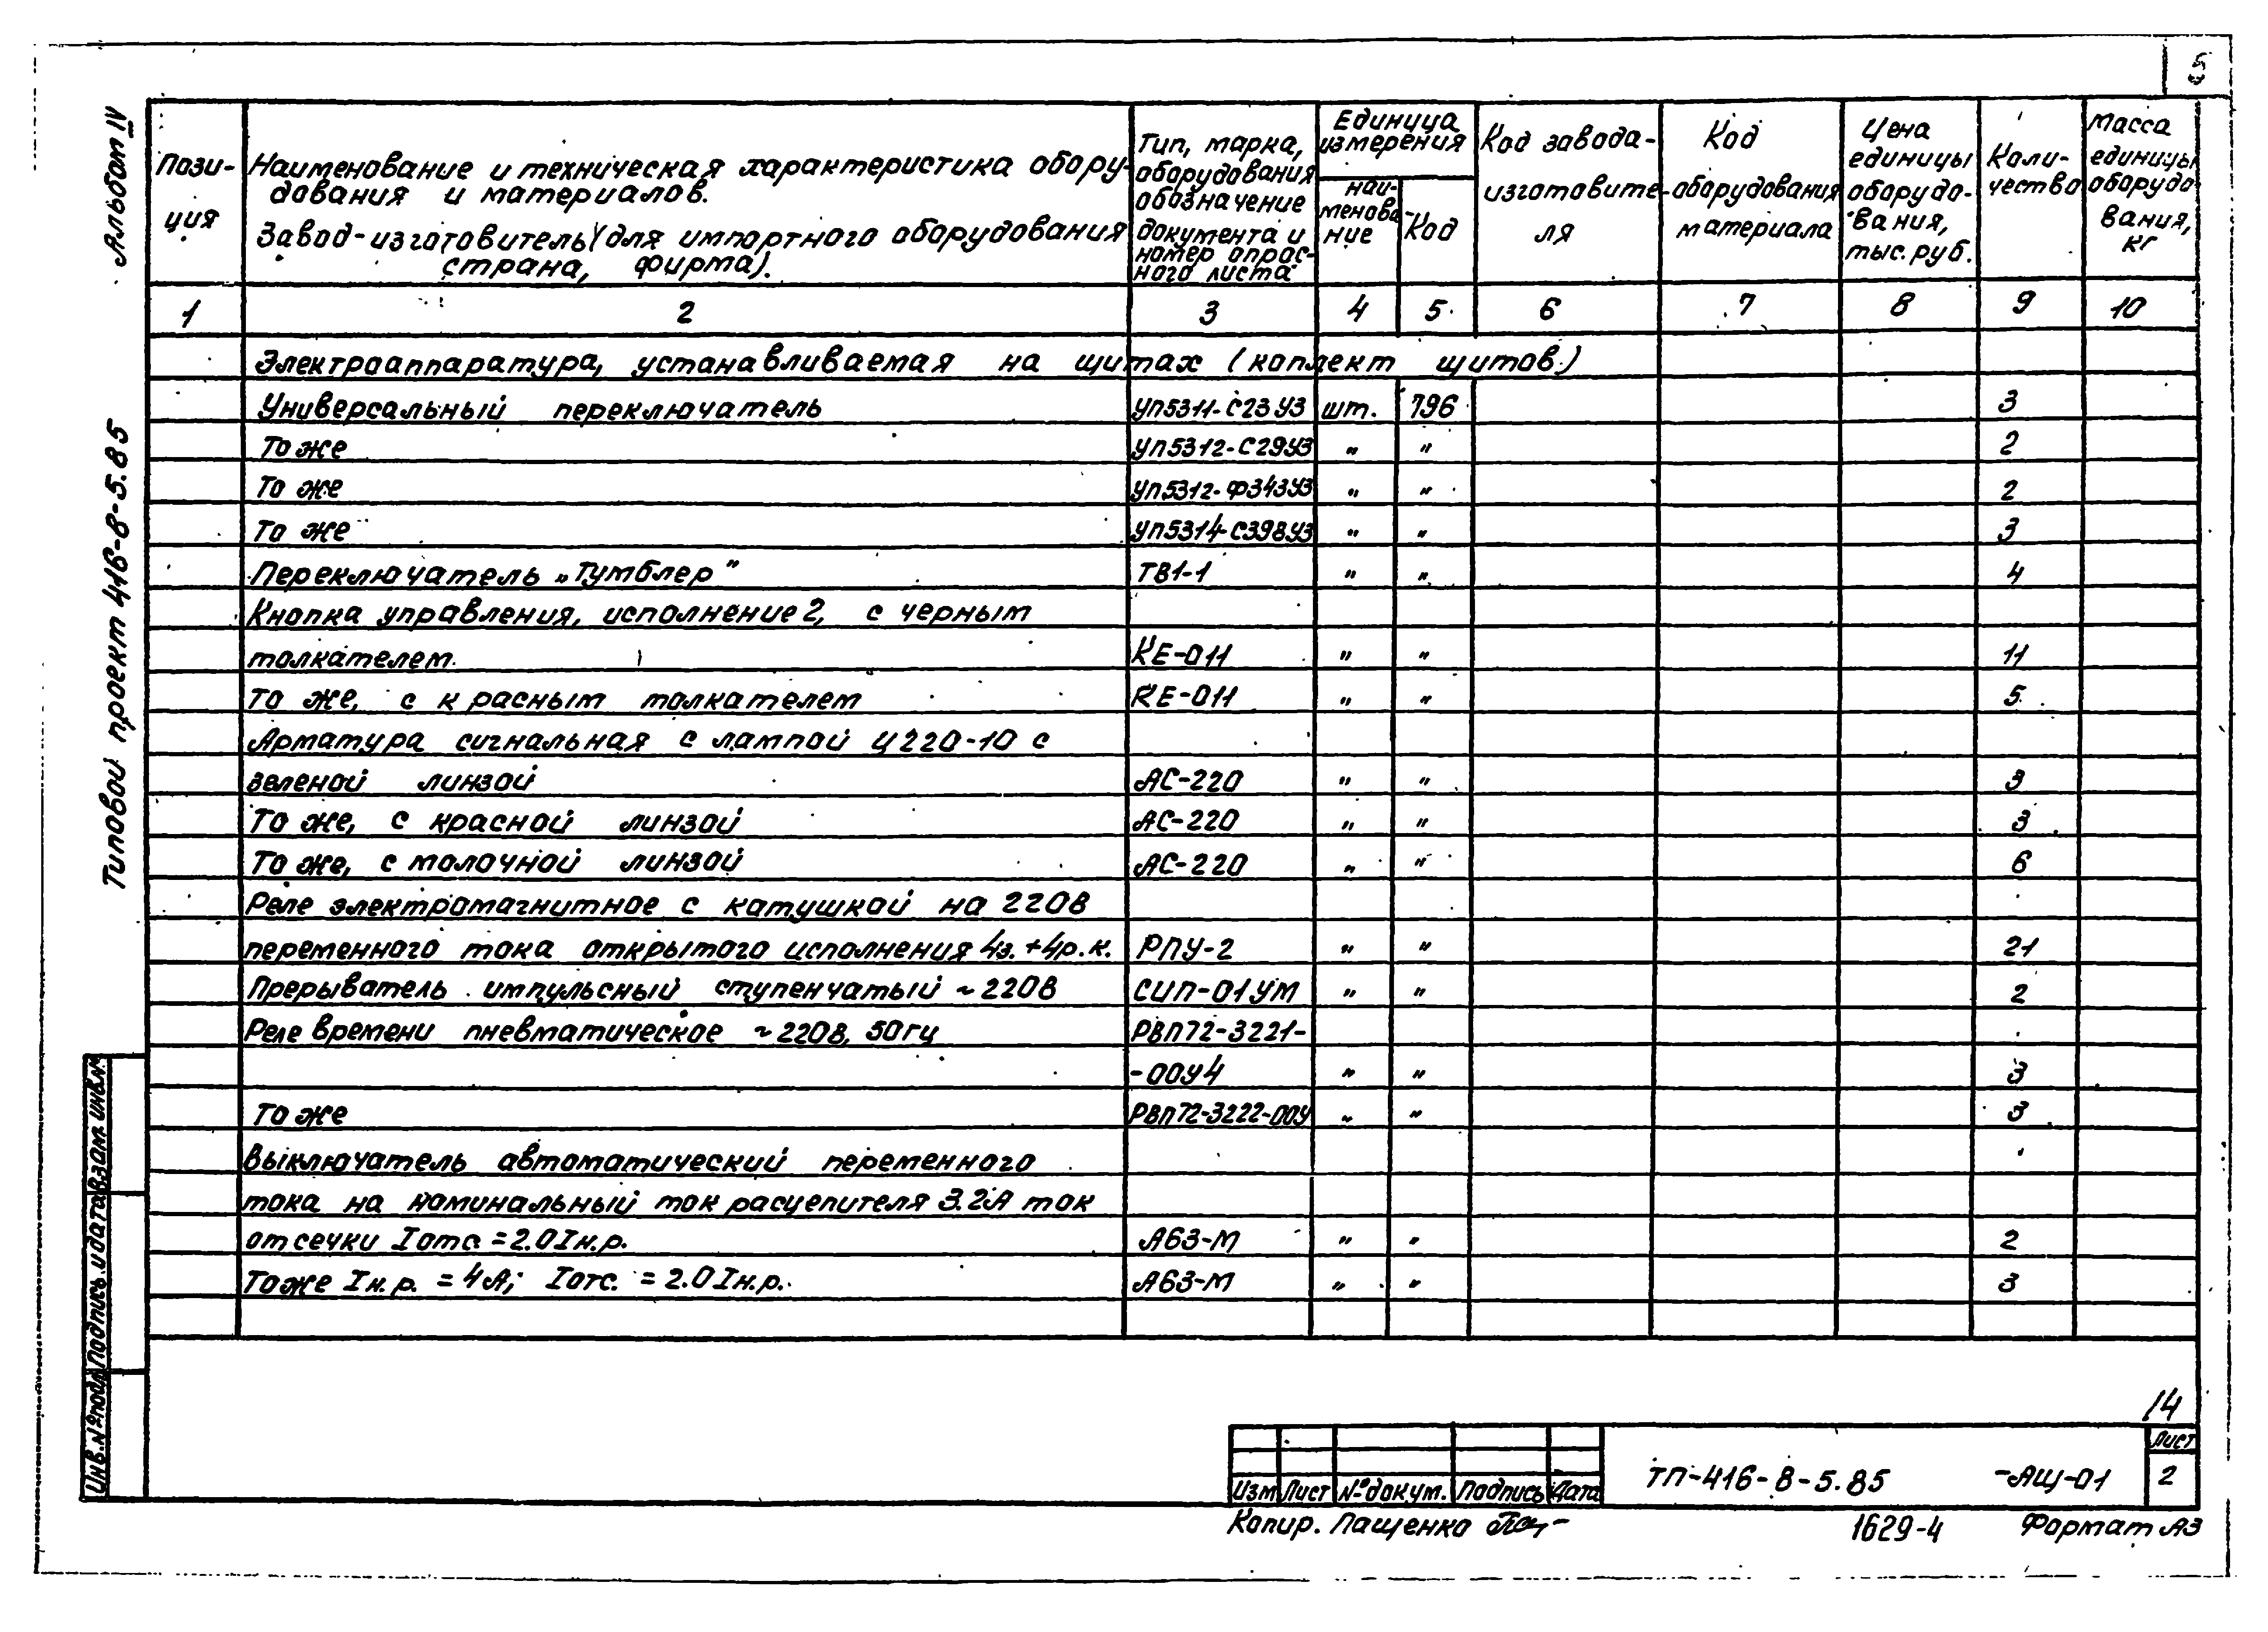 5
Альбом IV
Типовой проект 416-8-5.85
Пози-
ция
Наименование и техническая характеристика обору-
дования и материалов.
Завод-изготовитель (для импортного оборудования
страна, фирма).
Тип, марка,
оборудования
обозначение
документа и
номер опрос-
ного листа
Единица
измерения
наи-
менова-
ние
Код
Код завода-
изготовите-
ля
Код
оборудования
материала
Цена
единицы
оборудо-
вания,
тыс. руб.
Коли-
чество
Масса
единицы
оборудо
вания,
кг
1 2 3 4 5 6 7 8 9 10
Электроаппаратура, устанавливаемая на щитах (коплект щитов)
Универсальный переключатель УП5311-С23У3 шт. 796 3
То же УП5312-С29У3 " " 2
То же УП5312-Ф343У3 " " 2
То же УП5314-С398У3 " " 3
Переключатель „Тумблер" ТВ1-1 " " 4
Кнопка управления, исполнение 2, с черным
толкателем КЕ-011 " " 11
То же, с красным толкателем КЕ-011 " " 5
Арматура сигнальная с лампой Ц220-10 с
зеленой линзой АС-220 " " 3
То же, с красной линзой АС-220 " " 3
То же, с молочной линзой АС-220 " " 6
Реле электромагнитное с катушкой на 220В
переменного тока открытого исполнения 4з.+4р.к. РПУ-2 " " 21
Прерыватель импульсный ступенчатый ~220В СИП-01УМ " " 2
Реле времени пневматическое ~220В, 50гц РВП72-3221-
-00У4 " " 3
То же РВП72-3222-00У " " 3
Выключатель автоматический переменного
тока на номинальный ток расцепителя 3.2А ток
отсечки Iотс = 2.0Iн.р. А63-М " " 2
То же Iн.р. = 4А; Iотс. = 2.0Iн.р. А63-М " " 3
Взам. инв.№
Подпись и дата
Инв.№подл
14
Изм Лист №докум. Подпись Дата
ТП-416-8-5.85 -АЩ-01
Лист
2
Копир. Пащенко
1629-4
Формат А3